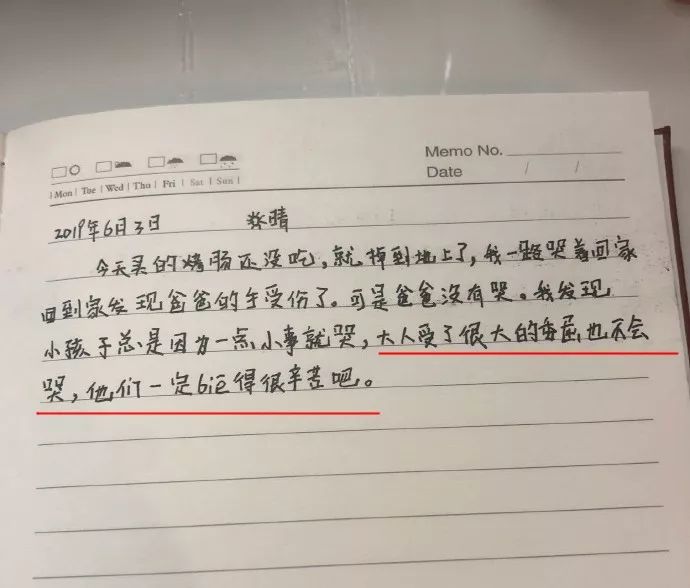 Memo No.
Date / /
Mon Tue Wed Thu Fri Sat Sun
2019年6月3日 晴
今天买的烤肠还没吃，就掉到地上了，我一路哭着回家
回到家发现爸爸的手受伤了。可是爸爸没有哭。我发现
小孩子总是因为一点小事就哭，大人受了很大的委屈也不会
哭，他们一定bie得很辛苦吧。